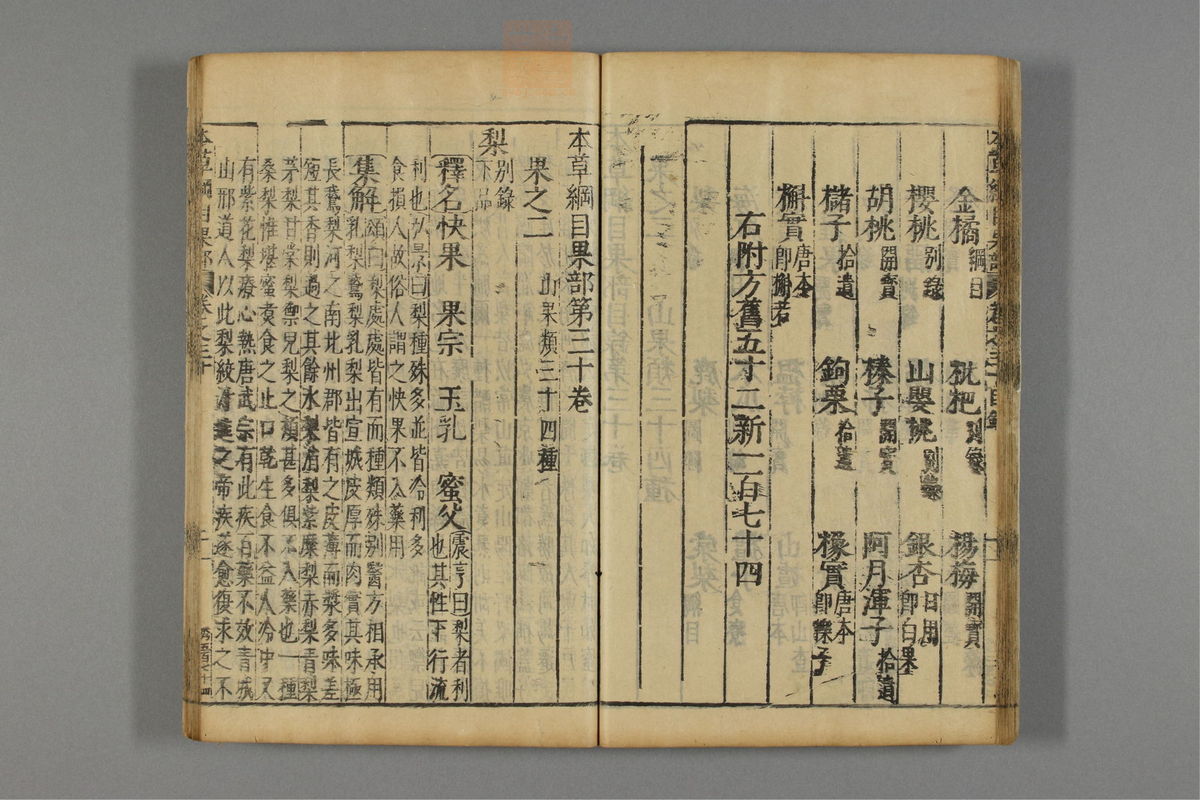 本草綱目果部 卷之三十目錄
金橘 綱目 枇杷 別錄 楊梅 開寶
櫻桃 別錄 山嬰桃 別錄 銀杏 日用 卽白果
胡桃 開寶 榛子 開寶 阿月渾子 拾遺
櫧子 拾遺 鉤栗 拾遺 橡實 唐本 卽櫟子
槲實 唐本 卽槲若
右附方舊五十二新二百七十四
本草綱目果部第三十卷
果之二 山果類三十四種
梨 別錄下品
釋名 快果 果宗 玉乳 蜜父 震亨曰梨者利也其性下行流
利也弘景曰梨種殊多並皆冷利多
食損人故俗人謂之快果不入藥用
集解 頌曰梨處處皆有而種類殊別醫方相承用
乳梨鵞梨乳梨出宣城皮厚而肉實其味極
長鵞梨河之南北州郡皆有之皮薄而漿多味差
短其香則過之其餘水梨消梨紫糜梨赤梨青梨
茅梨甘棠梨禦兒梨之類甚多俱不入藥也一種
桑梨惟堪蜜煮食之止口乾生食不益人冷中又
有紫花梨療心熱唐武宗有此疾百藥不效青城
山邢道人以此梨絞汁進之帝疾遂愈復求之不
本草綱目果部 卷之三十 一